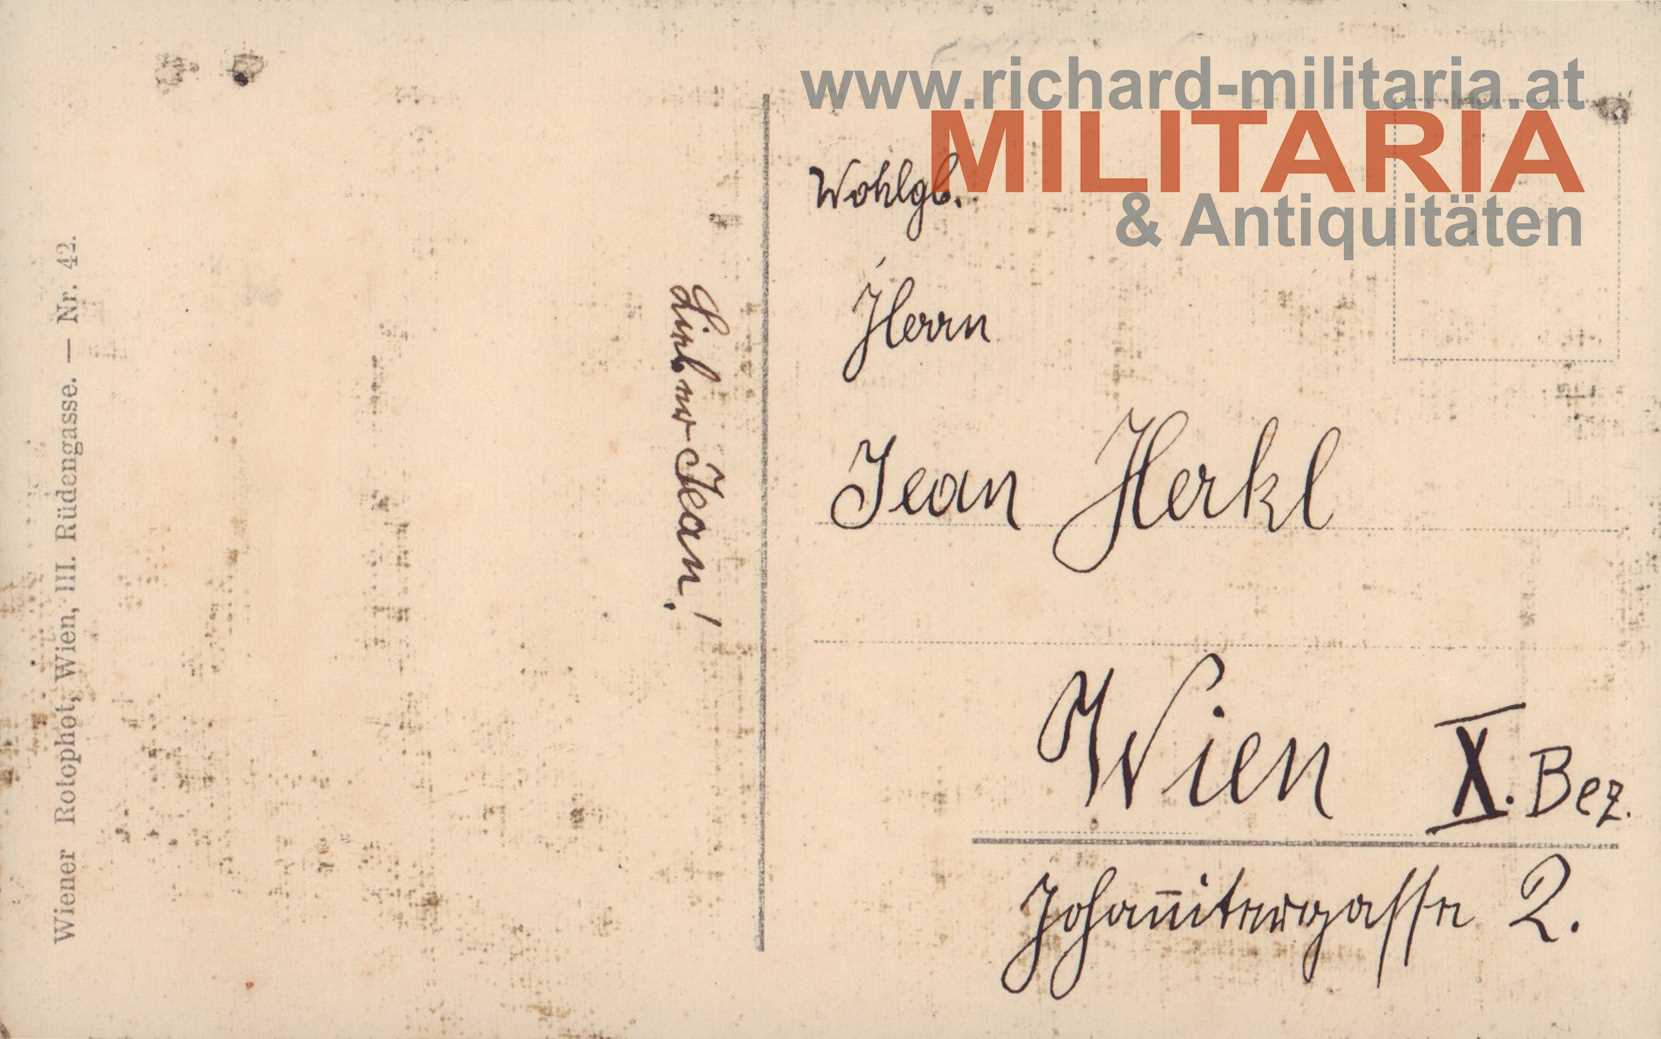 Wiener Rotophot, Wien, III. Rüdengasse. — Nr. 42.
Lieber Jean!
www.richard-militaria.at
MILITARIA
& Antiquitäten
Wohlgb.
Herrn
Jean Herkl
Wien X. Bez.
Johan̄itergasse 2.